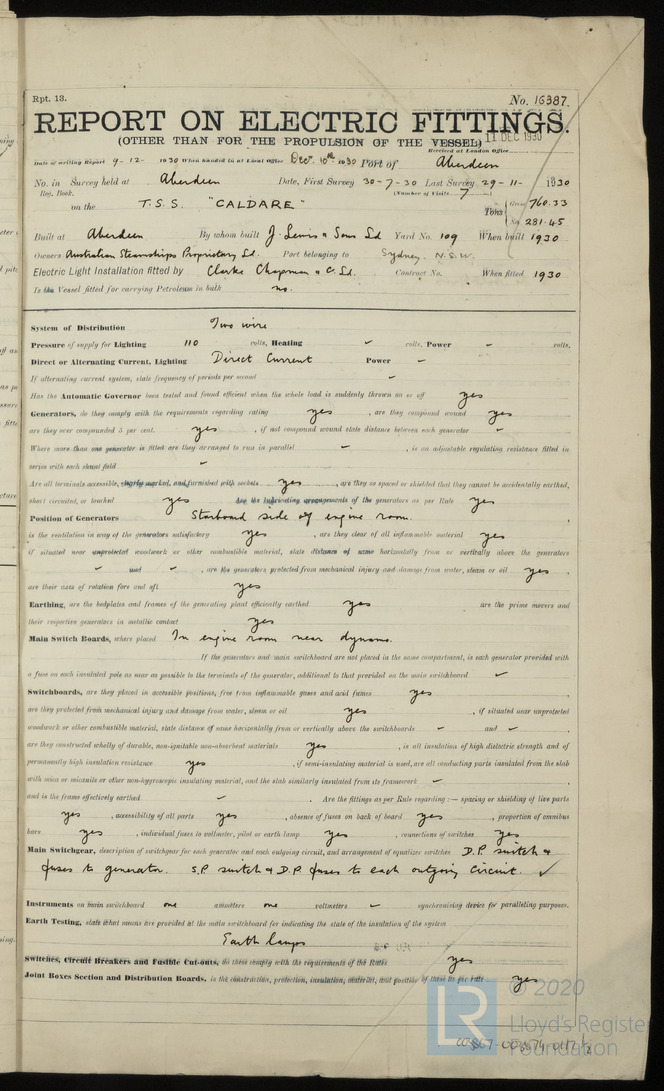 Rpt. 13.
No. 16387.
REPORT ON ELECTRIC FITTINGS.
(OTHER THAN FOR THE PROPULSION OF THE VESSEL)
11 DEC 1930
Received at London Office
Date of writing Report 9-12- 1930 When handed in at Local Office Decr 10th 1930 Port of Aberdeen
No. in Survey held at Aberdeen Date, First Survey 30-7-30 Last Survey 29-11- 1930
Reg. Book. (Number of Visits 7)
on the T.S.S. "CALDARE" Tons { Gross 760.33
Net 281.45
Built at Aberdeen By whom built J. Lewis & Sons Ld Yard No. 109 When built 1930
Owners Australian Steamships Proprietary Ld. Port belonging to Sydney. N.S.W.
Electric Light Installation fitted by Clarke Chapman & C. Ld. Contract No. When fitted 1930
Is the Vessel fitted for carrying Petroleum in bulk no.
System of Distribution Two wire
Pressure of supply for Lighting 110 volts, Heating ✓ volts, Power - volts,
Direct or Alternating Current, Lighting Direct Current Power -
If alternating current system, state frequency of periods per second -
Has the Automatic Governor been tested and found efficient when the whole load is suddenly thrown on or off yes
Generators, do they comply with the requirements regarding rating yes , are they compound wound yes
are they over compounded 5 per cent. yes , if not compound wound state distance between each generator -
Where more than one generator is fitted are they arranged to run in parallel - , is an adjustable regulating resistance fitted in
series with each shunt field ✓
Are all terminals accessible, clearly marked, and furnished with sockets yes , are they so spaced or shielded that they cannot be accidentally earthed,
short circuited, or touched yes Are the lubricating arrangements of the generators as per Rule yes
Position of Generators Starboard side of engine room.
is the ventilation in way of the generators satisfactory yes , are they clear of all inflammable material yes
if situated near unprotected woodwork or other combustible material, state distance of same horizontally from or vertically above the generators
✓ and ✓ , are the generators protected from mechanical injury and damage from water, steam or oil yes ,
are their axes of rotation fore and aft yes
Earthing, are the bedplates and frames of the generating plant efficiently earthed yes are the prime movers and
their respective generators in metallic contact yes
Main Switch Boards, where placed In engine room near dynamo.
If the generators and main switchboard are not placed in the same compartment, is each generator provided with
a fuse on each insulated pole as near as possible to the terminals of the generator, additional to that provided on the main switchboard ✓
Switchboards, are they placed in accessible positions, free from inflammable gases and acid fumes yes ,
are they protected from mechanical injury and damage from water, steam or oil yes , if situated near unprotected
woodwork or other combustible material, state distance of same horizontally from or vertically above the switchboards - and - ,
are they constructed wholly of durable, non-ignitable non-absorbent materials yes , is all insulation of high dielectric strength and of
permanently high insulation resistance yes , if semi-insulating material is used, are all conducting parts insulated from the slab
with mica or micanite or other non-hygroscopic insulating material, and the slab similarly insulated from its framework - ,
and is the frame effectively earthed ✓ . Are the fittings as per Rule regarding :— spacing or shielding of live parts
yes , accessibility of all parts yes , absence of fuses on back of board yes , proportion of omnibus
bars yes , individual fuses to voltmeter, pilot or earth lamp yes , connections of switches yes
Main Switchgear, description of switchgear for each generator and each outgoing circuit, and arrangement of equalizer switches D.P. switch &
fuses to generator. S.P switch & D.P fuses to each outgoing circuit. ✓
Instruments on main switchboard one ammeters one voltmeters ✓ synchronising device for paralleling purposes.
Earth Testing, state what means are provided at the main switchboard for indicating the state of the insulation of the system
Earth lamps
Switches, Circuit Breakers and Fusible Cut-outs, do these comply with the requirements of the Rules yes
Joint Boxes Section and Distribution Boards, is the construction, protection, insulation, material, and position of these as per rule yes
LR
© 2020
Lloyd's Register
Foundation